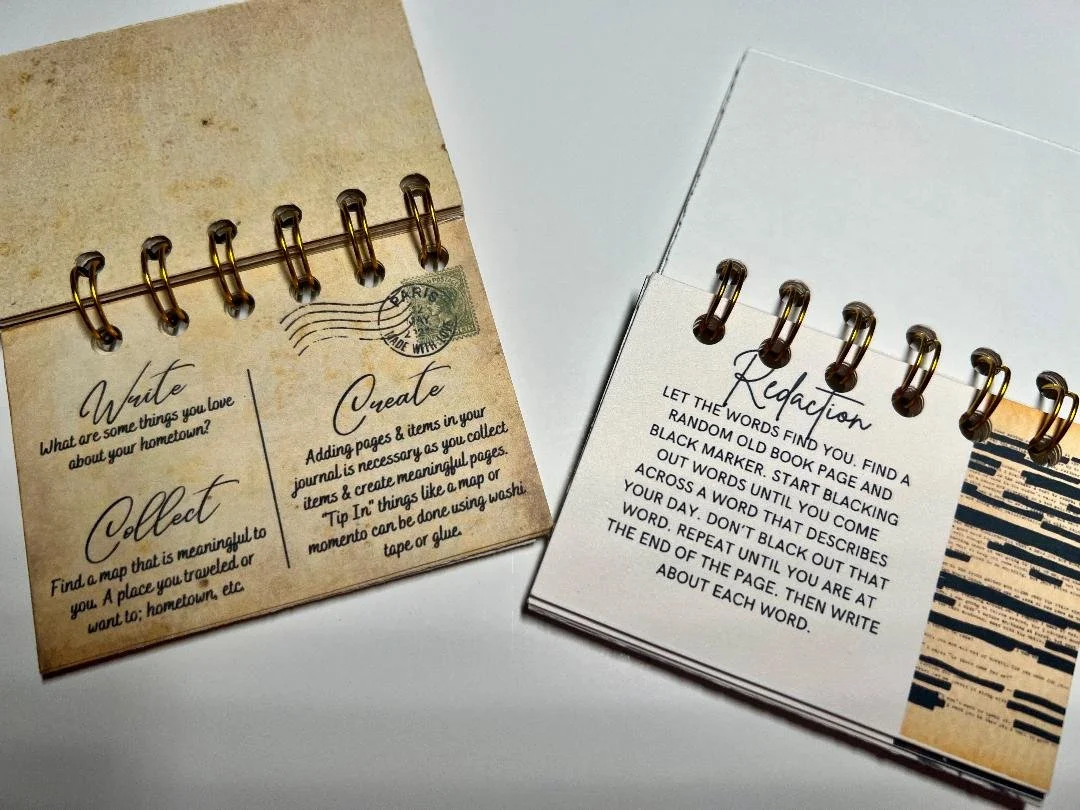 PARIS
MADE WITH LOVE
Write
What are some things you love
about your hometown?
Collect
Find a map that is meaningful to
you. A place you traveled or
want to; hometown, etc.
Create
Adding pages & items in your
journal is necessary as you collect
items & create meaningful pages.
"Tip In" things like a map or
momento can be done using washi
tape or glue.
Redaction
LET THE WORDS FIND YOU. FIND A
RANDOM OLD BOOK PAGE AND
BLACK MARKER. START BLACKING
OUT WORDS UNTIL YOU COME
ACROSS A WORD THAT DESCRIBES
YOUR DAY. DON'T BLACK OUT THAT
WORD. REPEAT UNTIL YOU ARE AT
THE END OF THE PAGE. THEN WRITE
ABOUT EACH WORD.